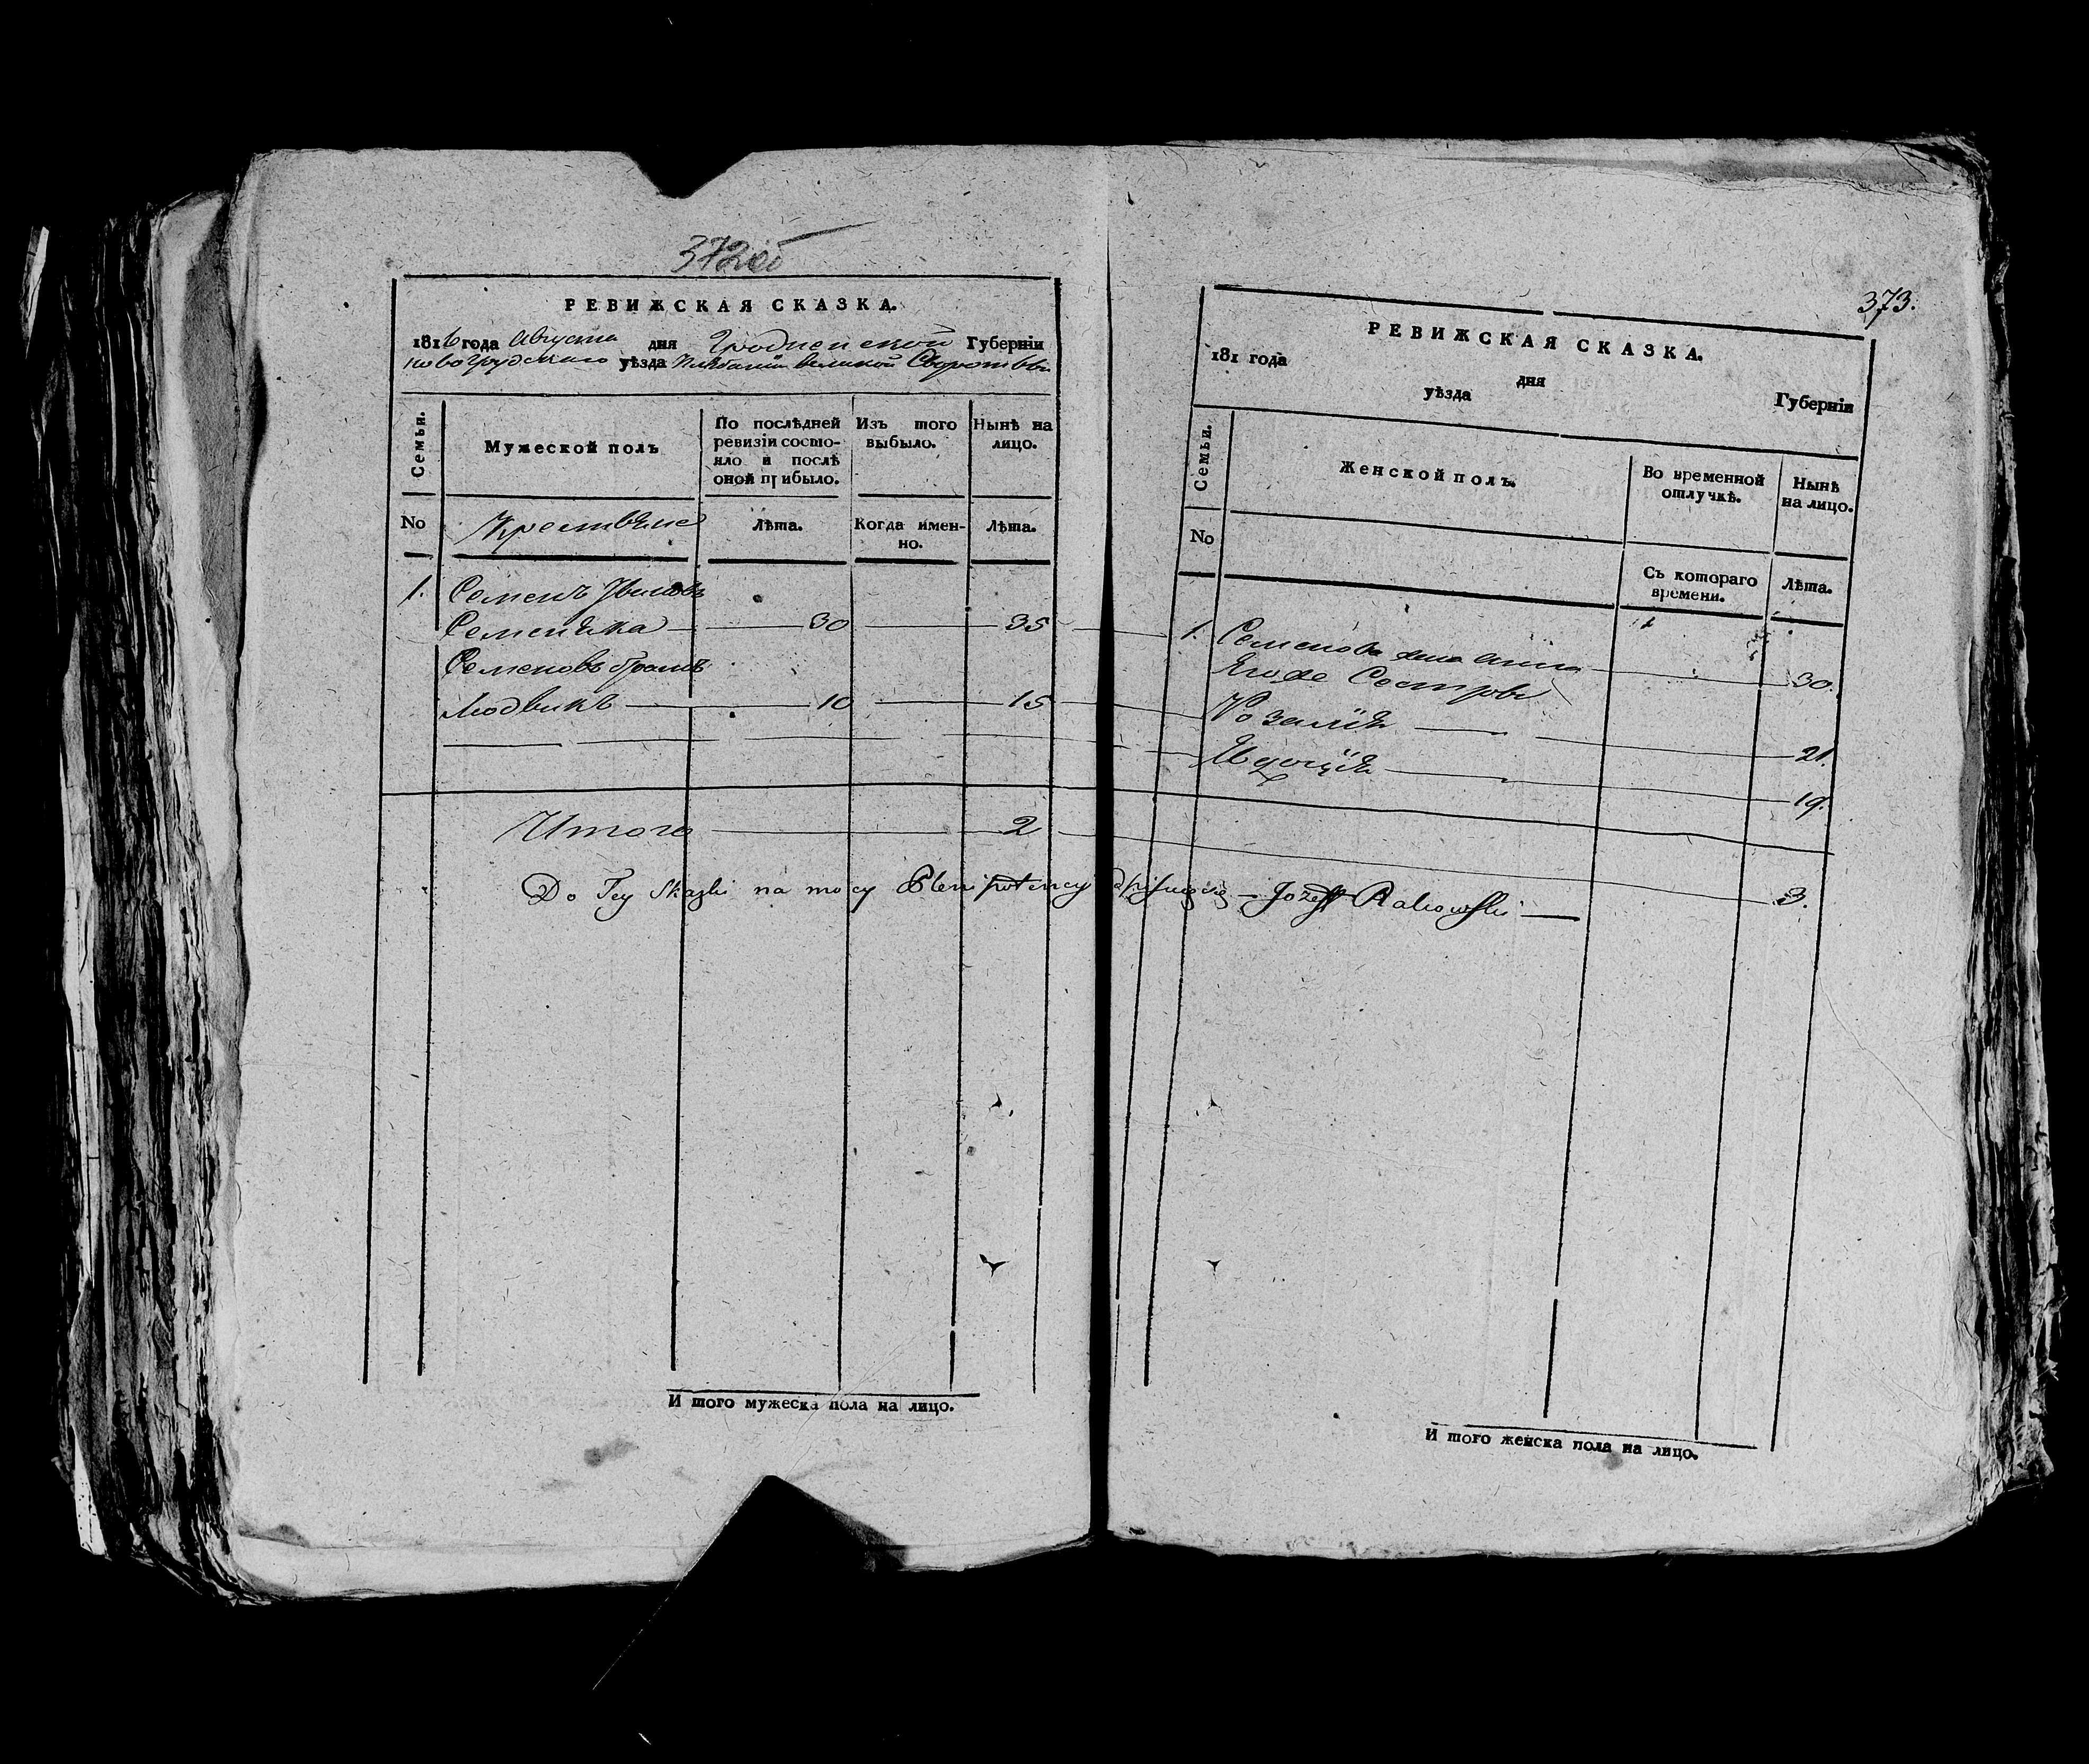 372об
РЕВИЖСКАЯ СКАЗКА.
1816 года Августа дня Гродненской Губерніи
Новогрудскаго уѣзда Плебаніи Великой Своротвы
Семьи. Мужеской полъ По послѣдней ревизіи состояло и послѣ оной прибыло. Изъ того выбыло. Нынѣ на лицо.
No Крестьяне Лѣта. Когда именно. Лѣта.
1. Семенъ Ивановъ
Семеняка 30 35
Семеновъ братъ
Людвикъ 10 15
Итого 2
Do Tey Skazki na mocy Plenipotencyi podpisuię się Jozeff Rakowski
373.
РЕВИЖСКАЯ СКАЗКА.
181 года дня
уѣзда Губерніи
Семьи. Женской полъ. Во временной отлучкѣ. Нынѣ на лицо.
No Съ котораго времени. Лѣта.
1. Семенова жена Анна 30.
Его же Сестры
Розалія 21.
19.
3.
И того мужеска пола на лицо.
И того женска пола на лицо.